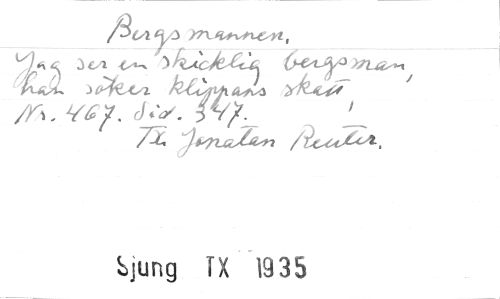 Bergsmannen.
Jag ser en skicklig bergsman,
han söker klippans skatt,
Nr. 467. Sid. 347.
Tx Jonatan Reuter.
Sjung TX 1935